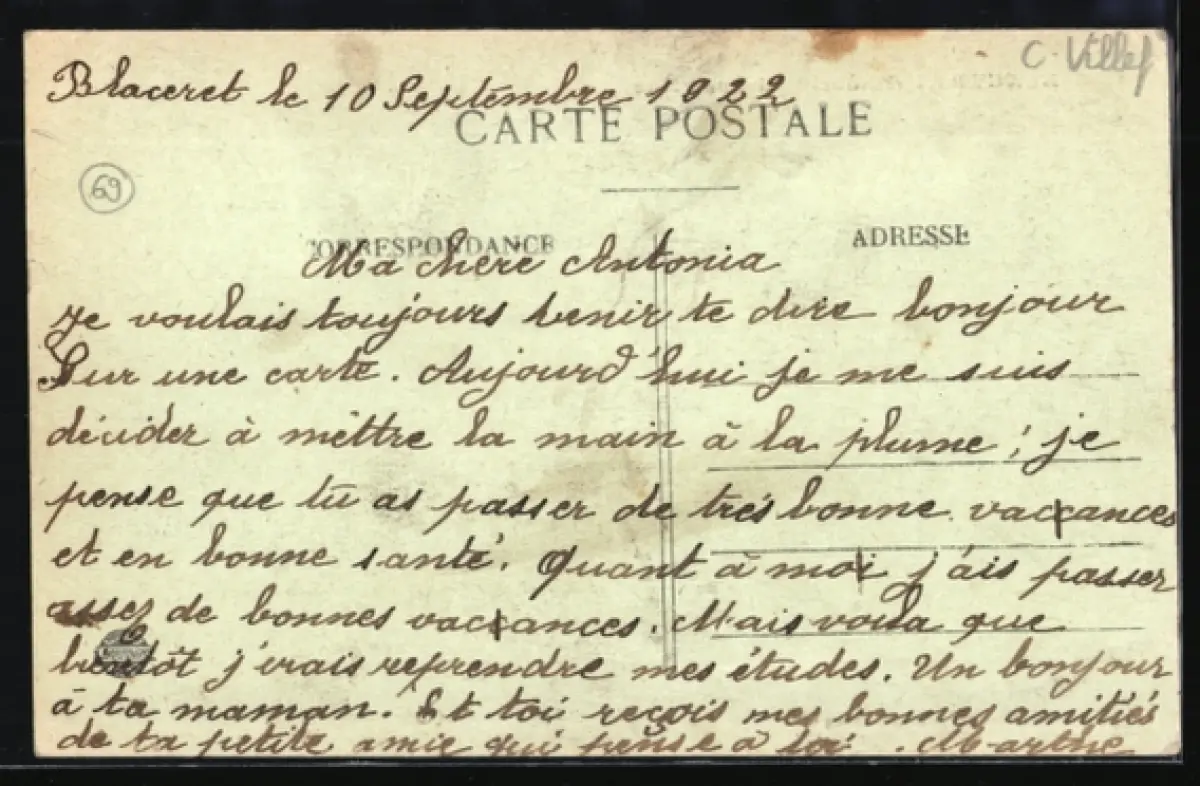 C. Villef
Blaceret le 10 Septembre 1922
CARTE POSTALE
69
CORRESPONDANCE
ADRESSE
Ma chère Antonia
Je voulais toujours venir te dire bonjour
Sur une carte. Aujourd'hui je me suis
décider à mêttre la main à la plume ; je
pense que tu as passer de très bonne vacxances
et en bonne santé. Quant à moi j'ais passer
assez de bonnes vacxances. Mais voila que
bientôt j'irais reprendre mes études. Un bonjour
à ta maman. Et toi reçois mes bonnes amitiés
de ta petite amie qui pense à toi. Marthe